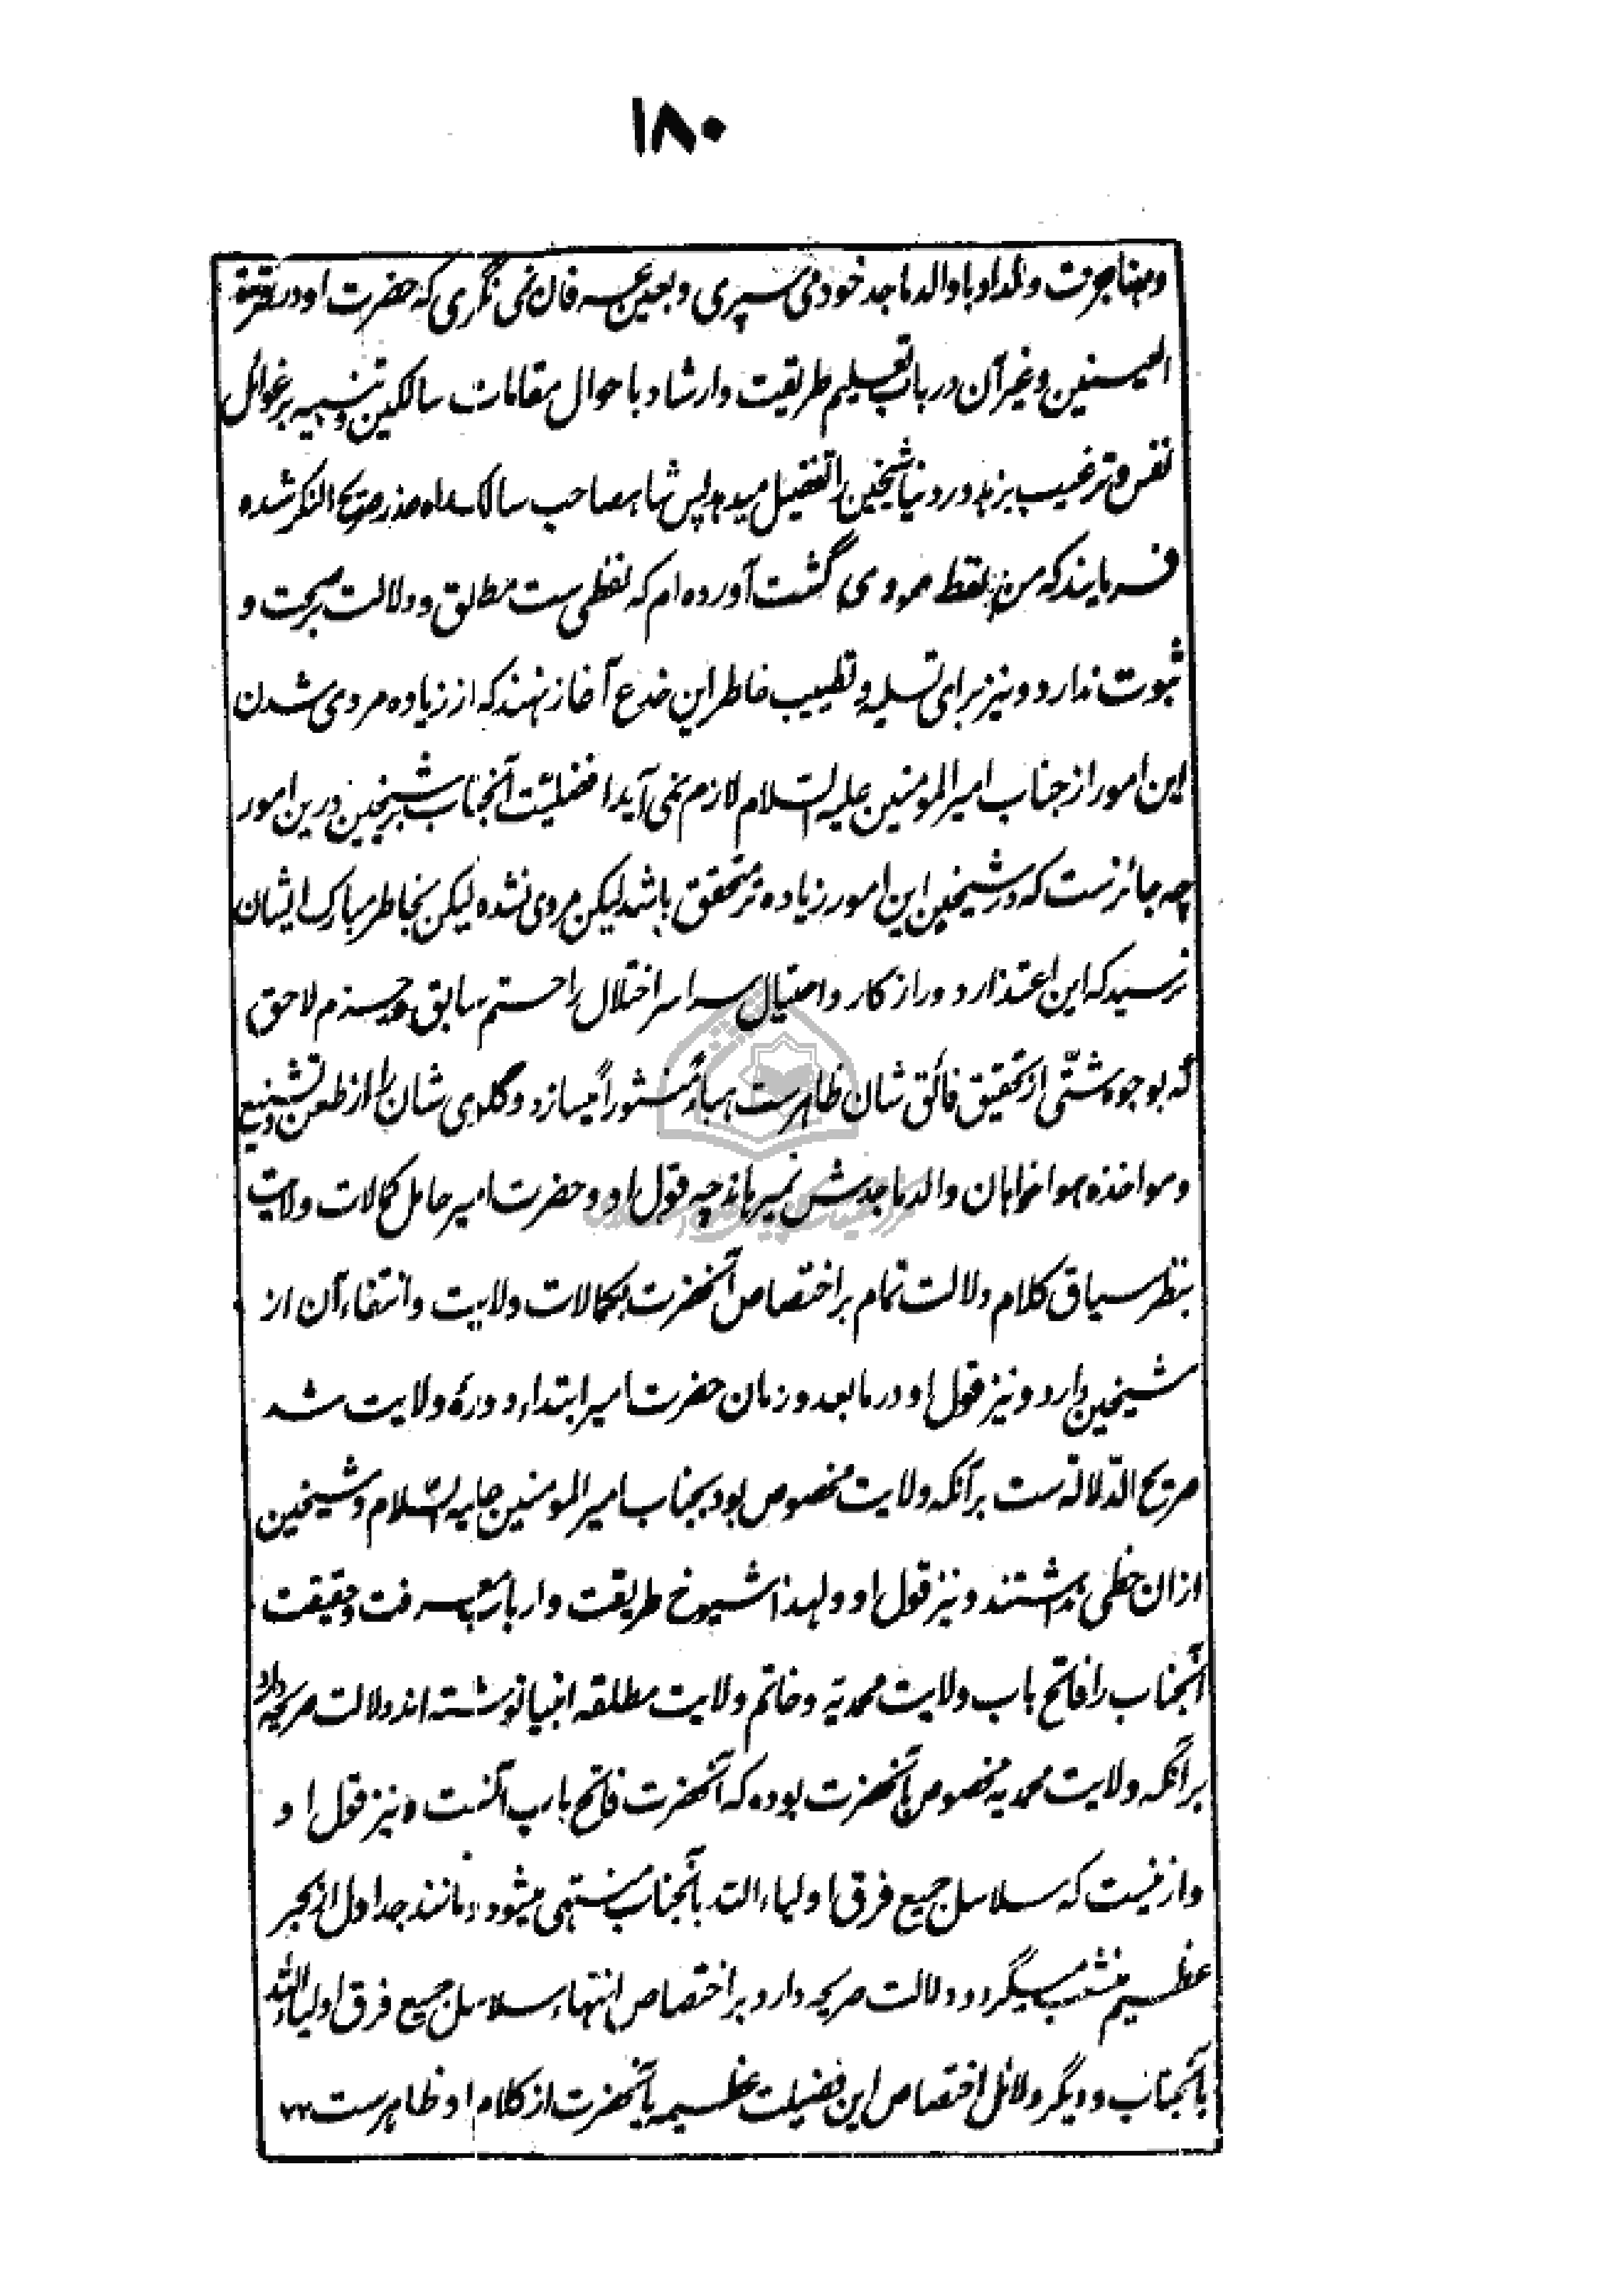 ۱۸۰
و مهاجرت ولد او با والد ماجد خود می سپری و بعین عرفان نمی نگری که حضرت او در قرة
العینین و غیر آن در باب تعلیم طریقت و ارشاد باحوال مقامات سالکین و تنبیه بر غوائل
نفس و ترغیب بزهد در دنیا شیخین را تفضیل میدهد پس شاهصاحب سالک راه عذر صریح النکر شده
فرمایند که من بلفظ مروی گشت آورده ام که لفظی ست مطلق و دلالت بر صحت و
ثبوت ندارد و نیز برای تسلیه و تطییب خاطر این خدع آغاز نهند که از زیاده مروی شدن
این امور از جناب امیرالمومنین علیه السلام لازم نمی آید افضلیّت آنجناب بر شیخین درین امور
چه جائزست که در شیخین این امور زیاده تر متحقق باشد لیکن مروی نشده لیکن بخاطر مبارک ایشان
نرسید که این اعتذار دور از کار و احتیال سراسر اختلال را ختم سابق و جزم لاحق
که بوجوه شتّی از تحقیق فائق شان ظاهرست هباءً منثوراً میسازد و گلوی شان را از طعن و تشنیع
و مواخذه هواخواهان والد ماجدش نمیرهاند چه قول او و حضرت امیر حامل کمالات ولایت
بنظر سیاق کلام دلالت تمام بر اختصاص آنحضرت بکمالات ولایت و انتفاء آن از
شیخین دارد و نیز قول او در ما بعد و زمان حضرت امیر ابتداء دورهٔ ولایت شد
صریح الدّلالة ست بر آنکه ولایت مخصوص بود بجناب امیرالمومنین علیه السّلام و شیخین
ازان حظی نداشتند و نیز قول او و لهذا شیوخ طریقت و ارباب معرفت و حقیقت
آنجناب را فاتح باب ولایت محمدیّه و خاتم ولایت مطلقه انبیا نوشته اند دلالت صریحه دارد
بر آنکه ولایت محمدیه مخصوص بآنحضرت بوده که آنحضرت فاتح باب آنست و نیز قول او
و ازنیست که سلاسل جمیع فرق اولیاء الله بآنجناب منتهی میشود و مانند جداول از بحر
عظیم منشعب میگردد دلالت صریحه دارد بر اختصاص انتهاء سلاسل جمیع فرق اولیاء الله
بآنجناب و دیگر دلائل اختصاص این فضیلت عظیمه بآنحضرت از کلام او ظاهرست ۷۲